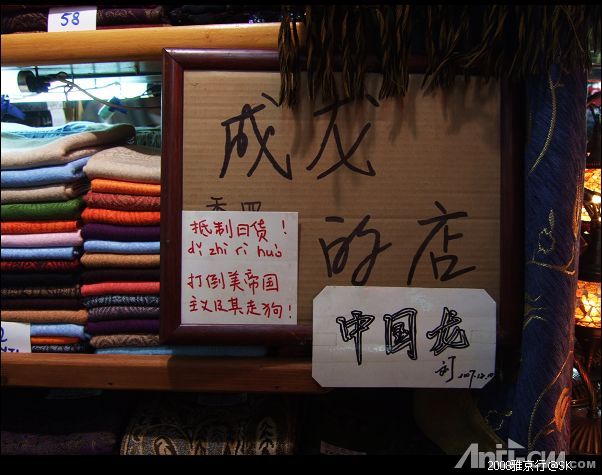 58
成龙
的店
抵制日货！
dǐ zhì rì huò
打倒美帝国
主义及其走狗！
中国龙
2007.12.10
2009雅京行@SK